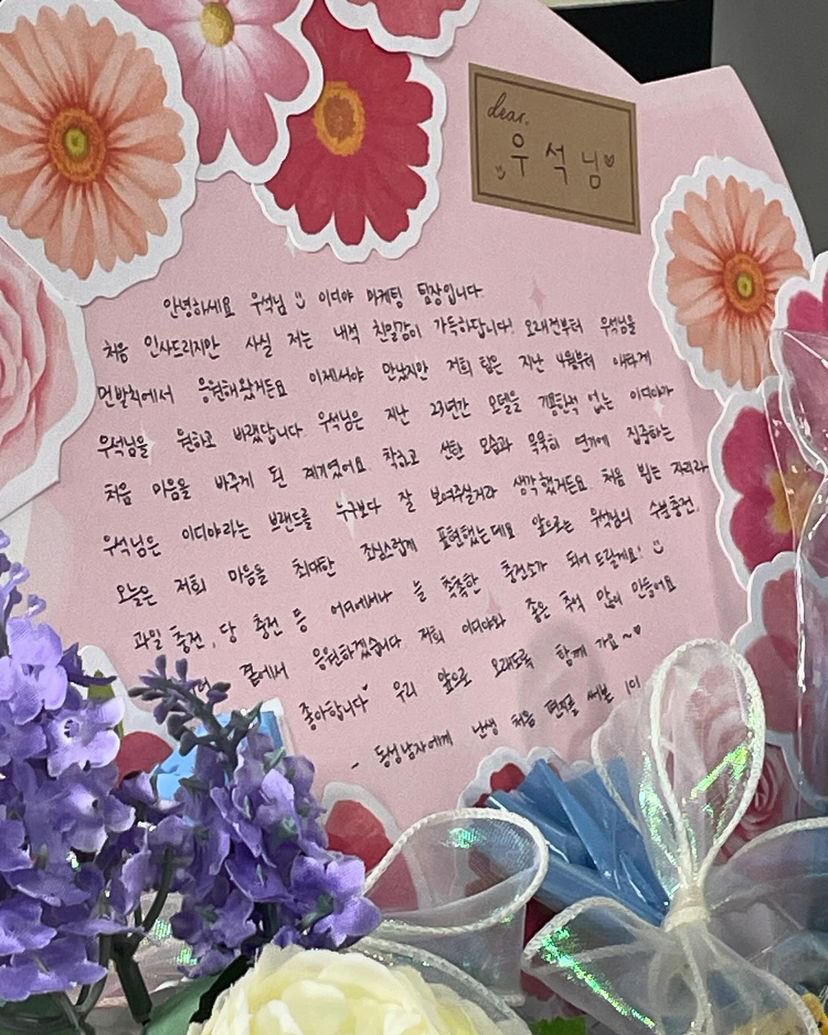 dear.
우석님♥
안녕하세요 우석님 :) 이디야 마케팅 팀장입니다.
처음 인사드리지만 사실 저는 내적 친밀감이 가득하답니다! 오래전부터 우석님을
먼발치에서 응원해왔거든요 이제서야 만났지만 저희 팀은 지난 4월부터 애타게
우석님을 원하고 바랬답니다. 우석님은 지난 23년간 모델을 기용한적 없는 이디야가
처음 마음을 바꾸게 된 계기였어요 착하고 선한 모습과 묵묵히 연기에 집중하는
우석님은 이디야라는 브랜드를 누구보다 잘 보여주실거라 생각했거든요 처음 뵙는 자리라
오늘은 저희 마음을 최대한 조심스럽게 표현했는데요 앞으로는 우석님의 수분충전,
과일 충전, 당 충전 등 어디에서나 늘 촉촉한 충전소가 되어 드릴게요! :)
곁에서 응원하겠습니다 저희 이디야와 좋은 추억 많이 만들어요
좋아합니다♥ 우리 앞으로 오래도록 함께 가요~♥
- 동성남자에게 난생 처음 편지를 써본